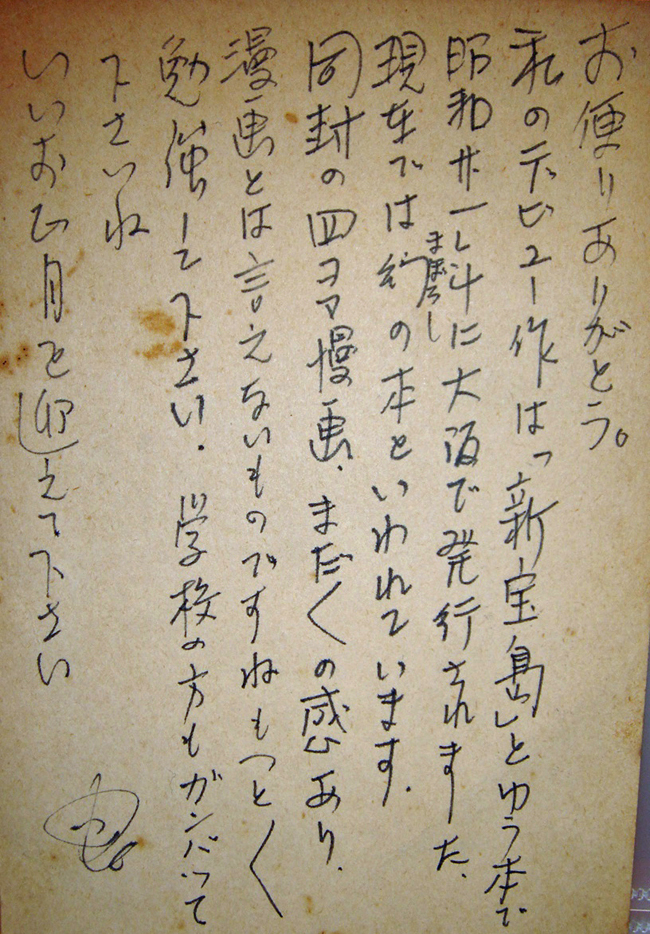 お便りありがとう。
私のデビュー作は「新宝島」とゆう本で
昭和廿一年に大阪で発行されました、
現在では幻の本といわれています.
まぼろし
同封の四コマ慢画、まだ〱の感あり、
漫画とは言えないものですねもっと〱
勉強して下さい.学校の方もガンバって
下さいね
いいお正月を迎えて下さい